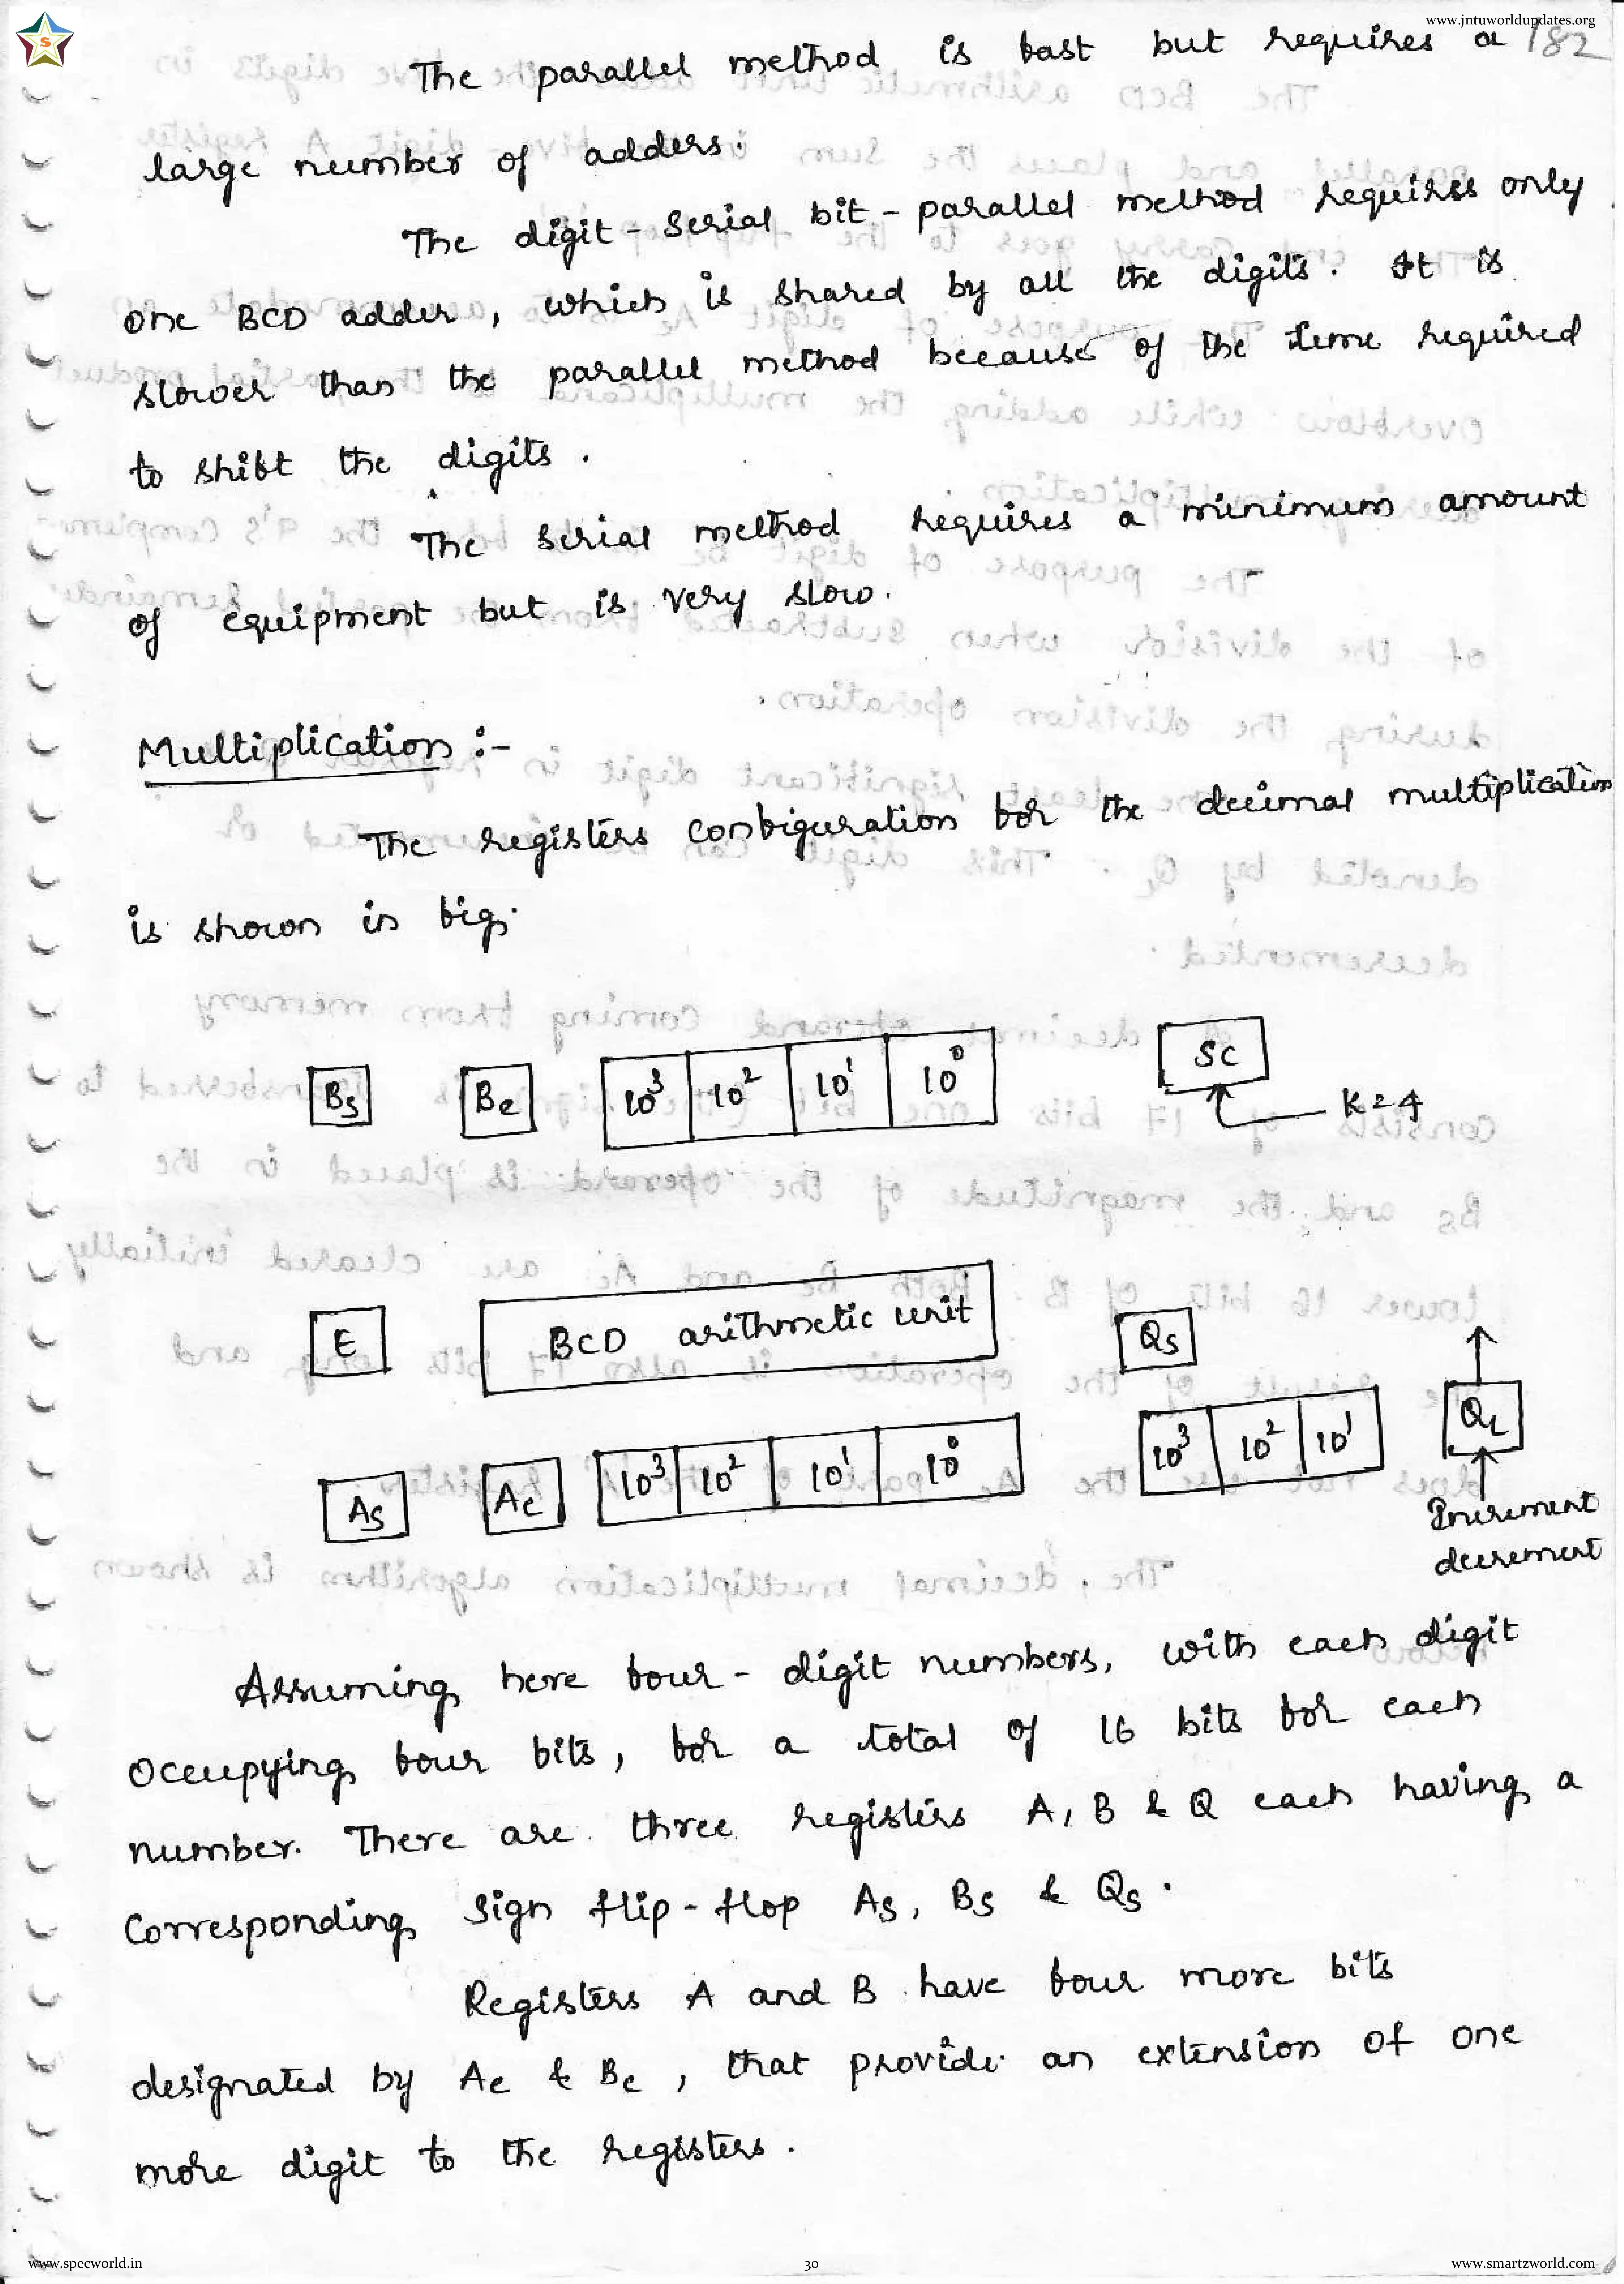 www.jntuworldupdates.org
The parallel method is fast but requires a 182
large number of adders.
The digit-serial bit-parallel method requires only
one BCD adder, which is shared by all the digits. It is
slower than the parallel method because of the time required
to shift the digits.
The serial method requires a minimum amount
of equipment but is very slow.
Multiplication :-
The registers configuration for the decimal multiplication
is shown in fig.
Bs Be 10³ 10² 10¹ 10⁰ SC
K=4
E BCD arithmetic unit Qs
As Ae 10³ 10² 10¹ 10⁰ 10³ 10² 10¹ QL
Increment
decrement
Assuming here four-digit numbers, with each digit
occupying four bits, for a total of 16 bits for each
number. There are three registers A, B & Q each having a
corresponding sign flip-flop As, Bs & Qs.
Registers A and B have four more bits
designated by Ae & Be, that provide an extension of one
more digit to the registers.
www.specworld.in 30 www.smartzworld.com